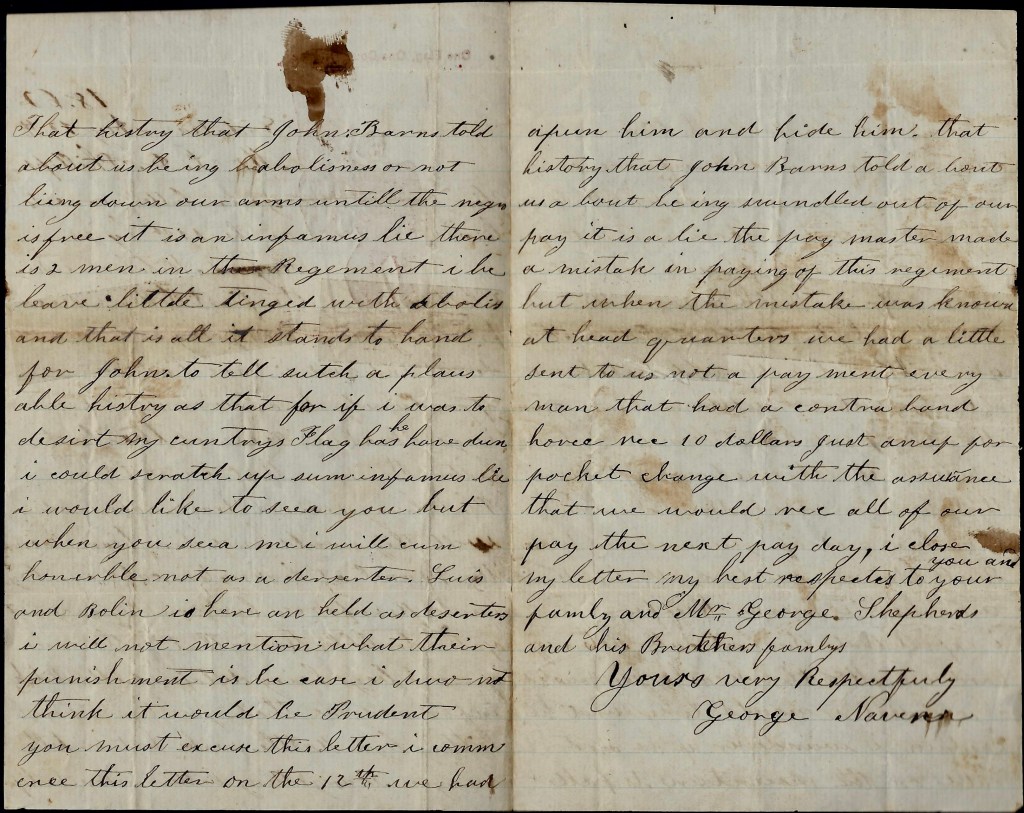 That histry that John Barns told
about us being babolisness or not
liing down our arms untill the negro
is free it is an infamus lie there
is 2 men in Regement i be
leave little tinged with abolis
and that is all it stands to hand
for John to tell sutch a plaus
able histry as that for if i was to
desirt my cuntrys Flag has he have dun
i could scratch up sum infamus lie
i would like to seea you but
when you seea me i will cum
honerble not as a derserter. Luis
and Bolin is here an held as deserters
i will not mention what their
punishment is be case i duo not
think it would be Prudent
you must excuse this letter i comm
ence this letter on the 12th we had
apun him and hide him. that
history that John Barns told a bout
us a bout be ing swindled out of our
pay it is a lie the pay master made
a mistak in paying of this regiment
but when the mistake was known
at head quarters we had a little
sent to us not a pay ment every
man that had a contra band
horce rec 10 dollars just anuf for
pocket change with the assurance
that we would rec all of our
pay the next pay day, i close
my letter my best respectes to you and your
famly and Mr. George Shepherds
and his Bruthers famlys
Yours very Respectfuly
George